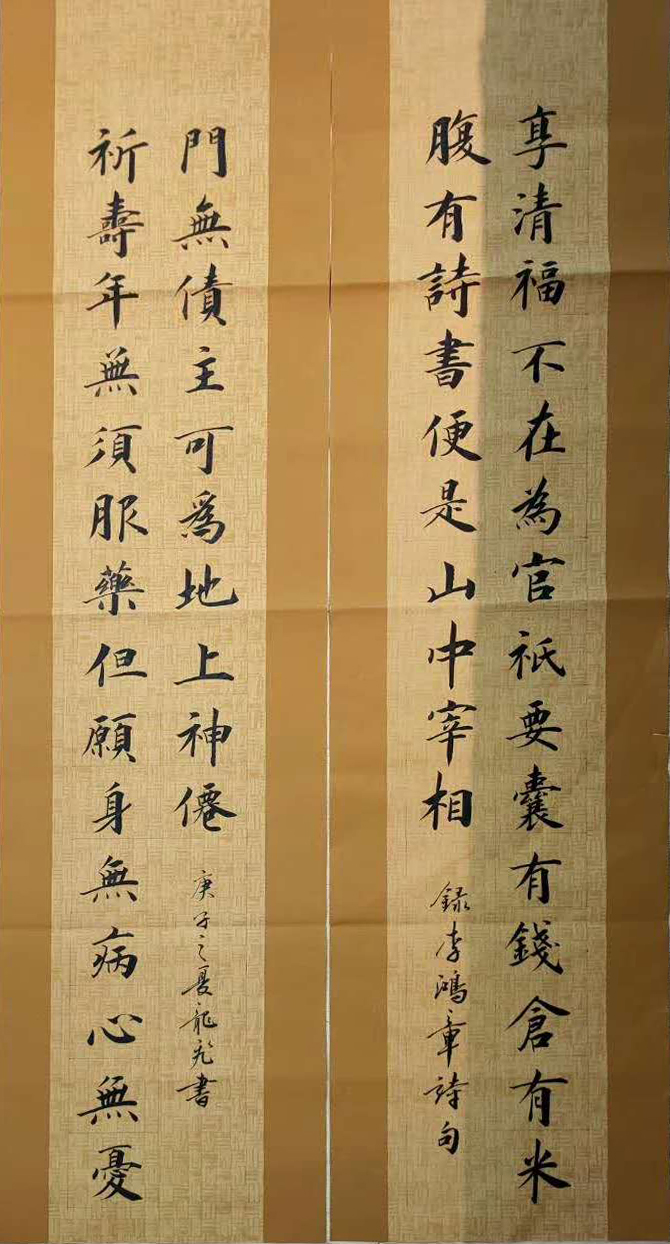 享清福不在為官祇要囊有錢倉有米
腹有詩書便是山中宰相
録李鴻章詩句
祈壽年無須服藥但願身無病心無憂
門無債主可爲地上神僊
庚子之夏龍書